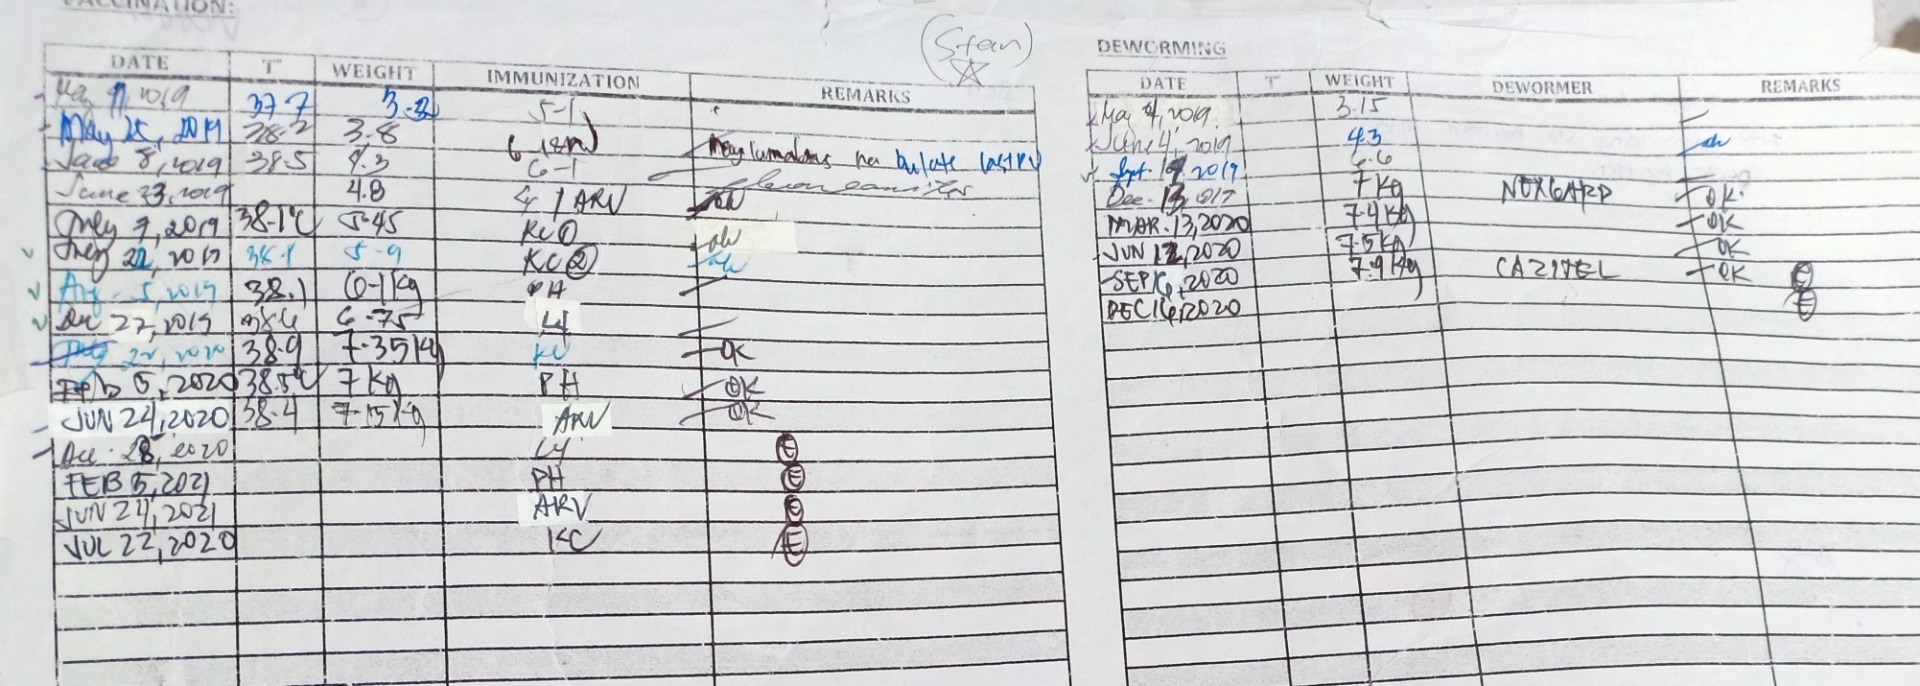 VACCINATION:
(Stan)
DATE T° WEIGHT IMMUNIZATION REMARKS
May 11, 2019 37.7 3.2 5-1
May 25, 2019 38.2 3.8 6
June 8, 2019 38.5 4.3 6-1 May lumalabas na bulate last
June 23, 2019 4.8 L4 / ARV
July 7, 2019 38.1°C 5.45 KC① ok
July 22, 2019 38.1 5.9 KC② ok
Aug. 5, 2019 38.1 6.1kg PH
Dec 27, 2019 38.6 6.75 L4
22, 2020 38.9 7.35kg KC OK
Feb 5, 2020 38.5°C 7 kg PH OK
JUN 24, 2020 38.4 7.15kg ARV OK
Dec. 28, 2020 L4 E
FEB 5, 2021 PH E
JUN 24, 2021 ARV E
JUL 22, 2020 KC E
DEWORMING
DATE T° WEIGHT DEWORMER REMARKS
May 4, 2019 3.15
June 4, 2019 4.3 ok
Sept. 2019 6.6
Dec. 13 7 kg NEXGARD OK
MAR. 13, 2020 7.4 kg OK
JUN 12, 2020 7.5 kg OK
SEP 16, 2020 7.9 kg CAZITEL OK E
DEC 16, 2020 E